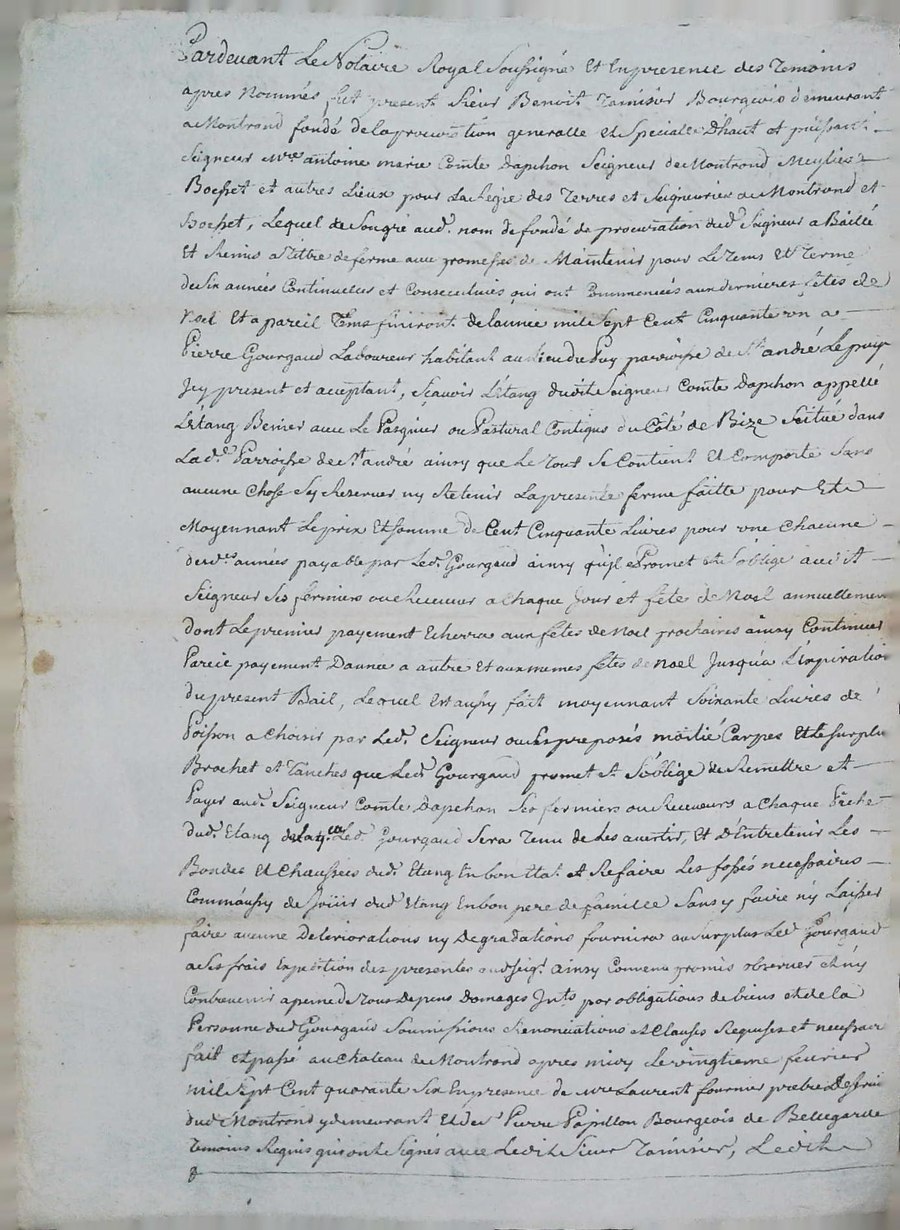 Pardevant Le Notaire Royal Soussigné Et En presence des Temoins
apres Nommés fut present Sieur Benoit Tamisier Bourgeois demeurant
a Montrond fondé de la procuration generalle et Speciale D'haut et puissant
Seigneur Mre antoine marie Comte Dapchon Seigneur de Montrond Meylieu
Boesset et autres Lieux pour La Régie des Terres et Seigneuries de Montrond et
Boesset, Lequel de Son gré aud. nom de fondé de procuration dud. Seigneur a Baillé
Et Remis a Tittre de ferme avec promesses de Maintenir pour Le Tems Et Terme
de Six années Continuelles et Consecutives qui ont Commencées aux dernieres fêtes de
Noel Et a pareil Tems finiront de L'année mil Sept Cent Cinquante un a
Pierre Gourgaud Laboureur habitant au Lieu du Puy parroisse de St. andré Le puy
Icy present et acceptant, Scavoir L'étang dudit Seigneur Comte Dapchon appellé
L'étang Bernier avec Le Pasquier ou Pastural Contigus du Côté de Bize Scitué dans
Lad. Parroisse de St andré ainsy que Le Tout Se Contient Et Comporte Sans
aucune Chose Sy Reserver ny Retenir La presente ferme faitte pour Et
Moyennant Le prix Et Somme de Cent Cinquante Livres pour une Chacune
desd. années payable par Led. Gourgaud ainsy qu'il Promet et S'oblige audit
Seigneur Ses fermiers ou Receveur a Chaque Jour et fête de Noël annuellement
dont Le premier payement Echerra aux fêtes de Noel prochaines ainsy Continuer
Pareil payement D'année a autre Et aux mêmes fêtes de noel Jusqu'a L'expiration
du present Bail, Lequel Est aussy fait moyennant Soixante Livres de
Poisson a Choisir par Led. Seigneur ou Ses preposés moitié Carpes Et Le Surplus
Brochet et Tanches que Led. Gourgaud promet et S'oblige de Remettre et
Payer aud. Seigneur Comte Dapchon Ses fermiers ou Receveurs a Chaque Pêche
dud. Etang de Laq.lle Led. Gourgaud Sera Tenu de Les avertir, Et D'Entretenir Les
Bondes Et Chaussées dud. Etang En bon Etat et Refaire Les fossés necessaires
Comm'aussy de Jouir dud. Etang En bon pere de famille Sans y faire ny Laisser
faire aucune Deteriorations ny Degradations fournira au Surplus Led. Gourgaud
a Ses frais Expedition des presentes aud. Seigr. ainsy Convenu promis observer et n'y
Contrevenir a peine de Tous Depens Domages Ints. par obligations de biens et de la
Personne dud. Gourgaud Soumissions Renonciations et Clauses Requises et necessaires
fait et passé au Chateau de Montrond apres midy Le vingtieme fevrier
mil Sept Cent quarante Six En presence de Mre Laurent fournier prêtre
dud. Montrond y demeurant Et de Sr. Pierre Papillon Bourgeois de Bellegarde
Temoins Requis qui ont Signés avec Ledit Sieur Tamisier, Ledit